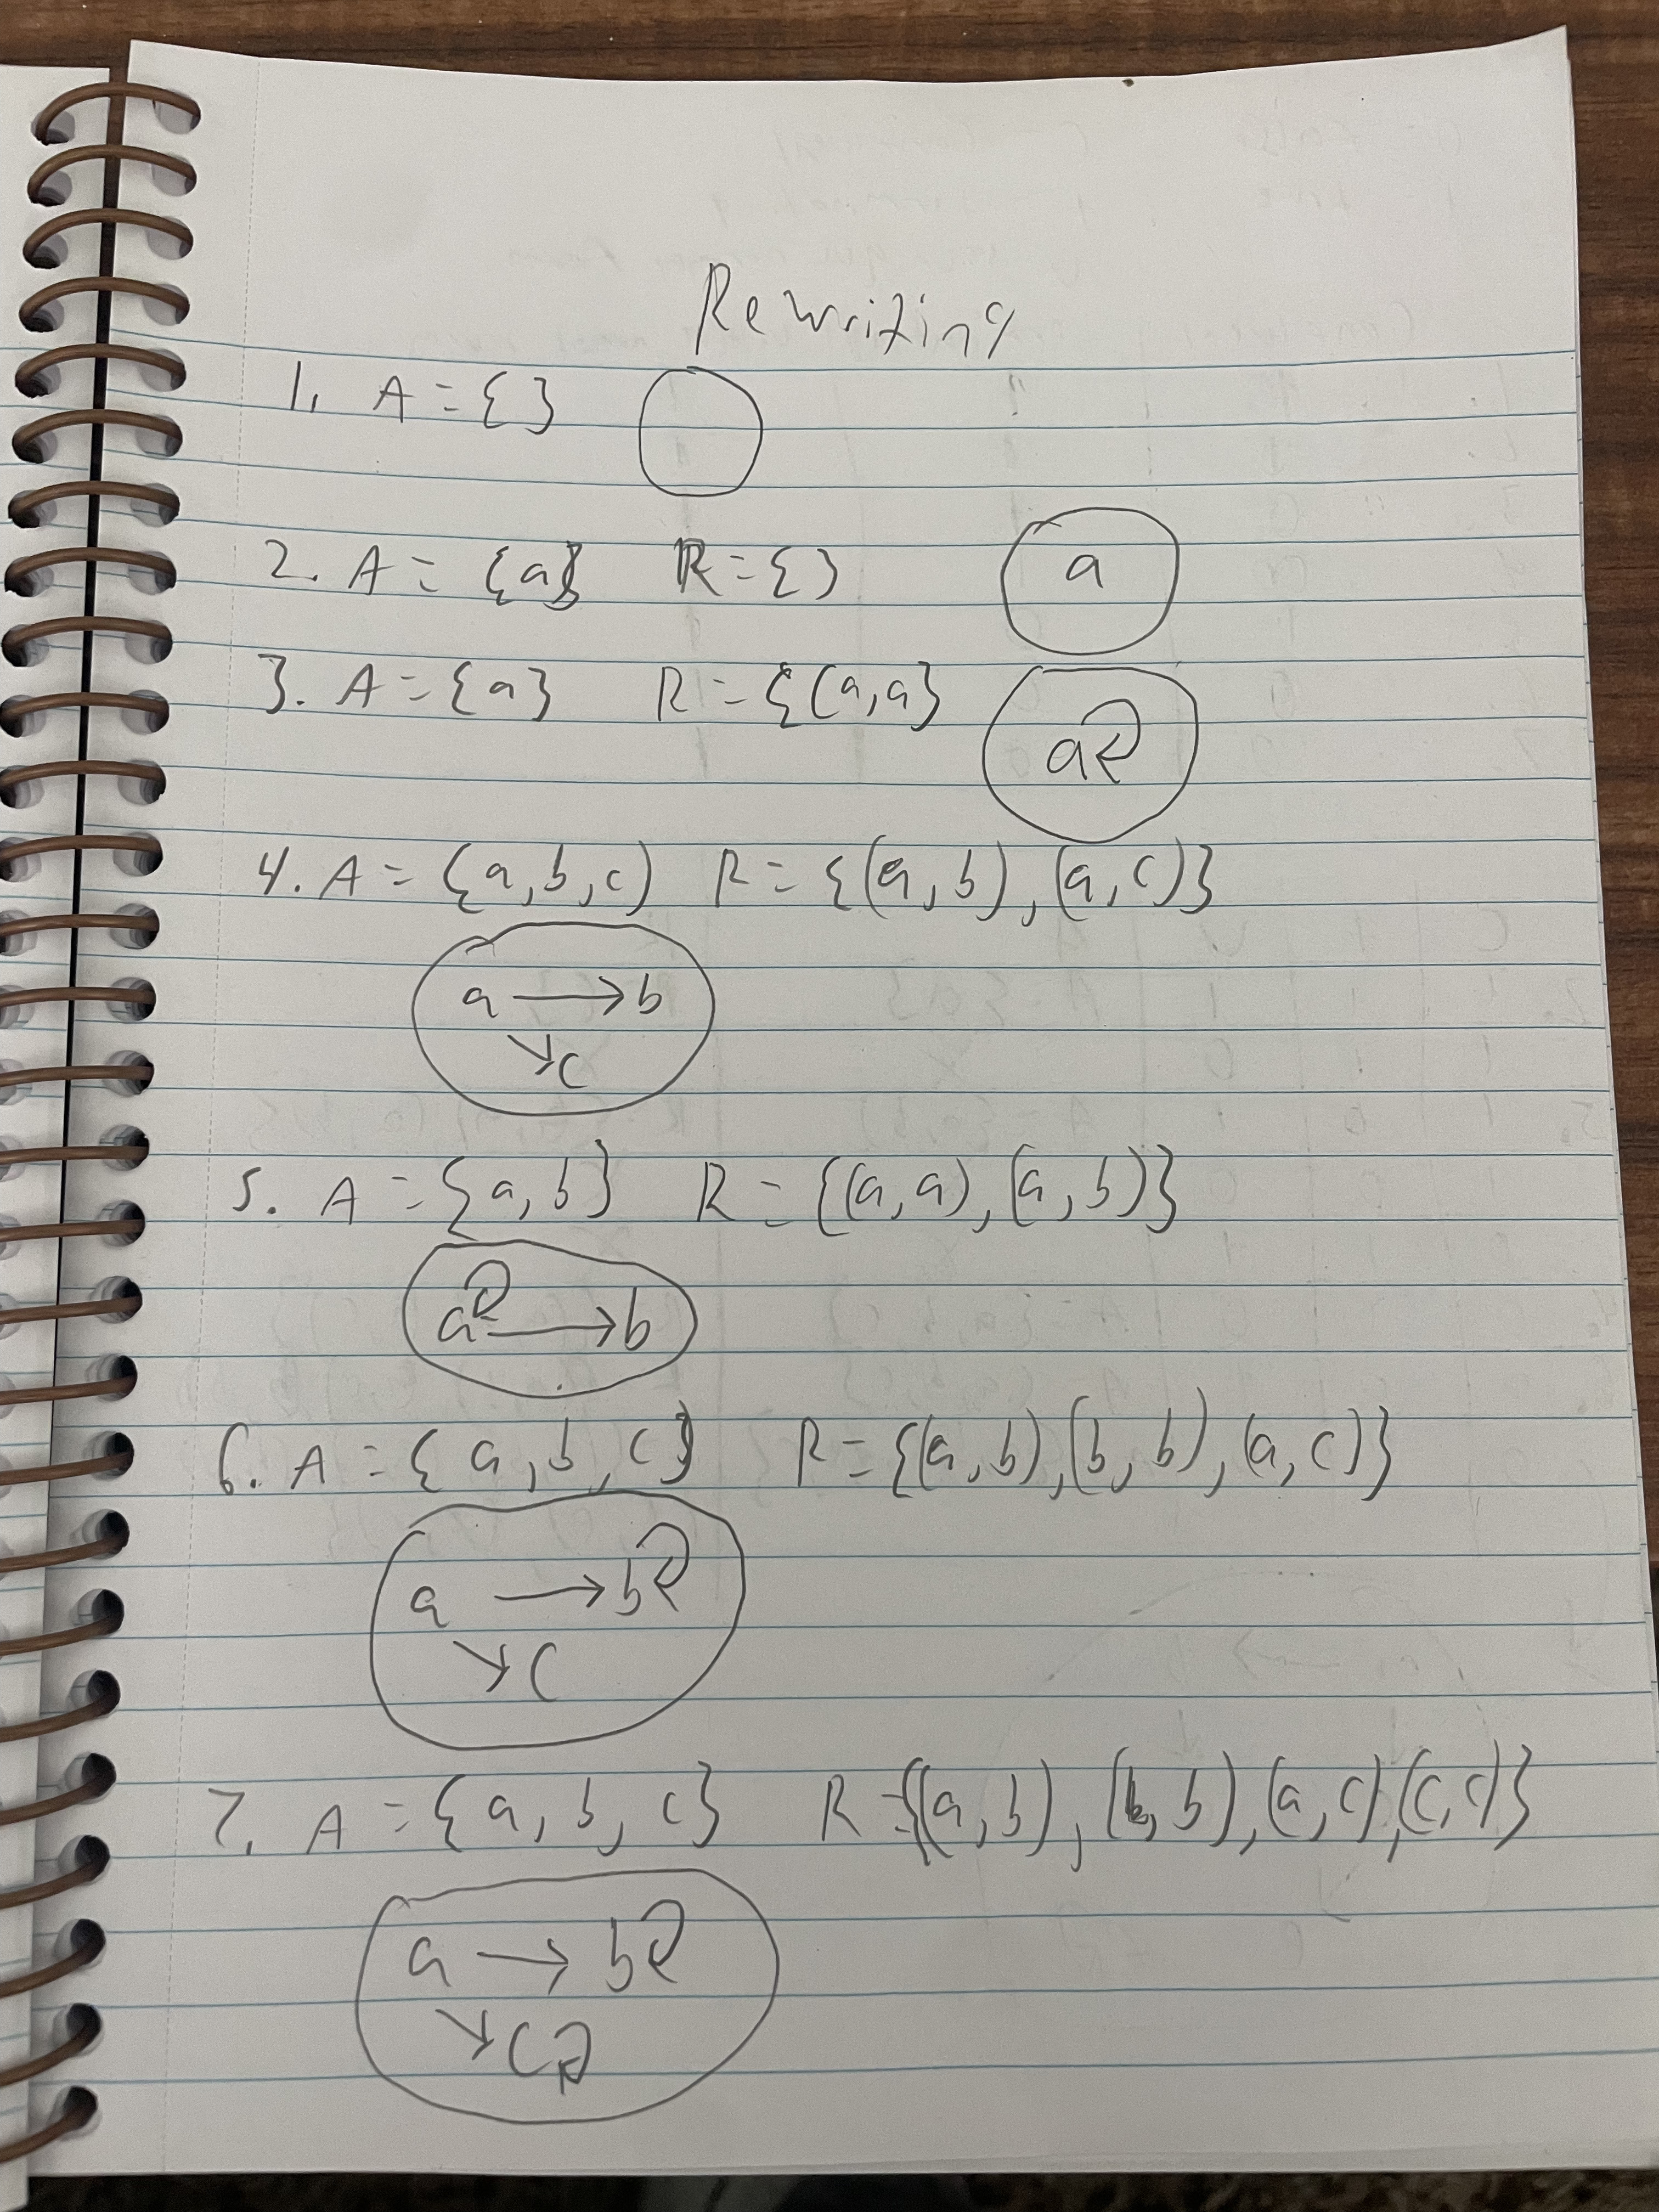 Rewriting
1. A = { }
2. A = {a} R = { } a
3. A = {a} R = {(a,a}
a
4. A = {a, b, c) R = {(a, b), (a, c)}
a → b
↘ c
5. A = {a, b} R = {(a, a), (a, b)}
a → b
6. A = {a, b, c} R = {(a, b), (b, b), (a, c)}
a → b
↘ c
7. A = {a, b, c} R = {(a, b), (b, b), (a, c), (c, c)}
a → b
↘ c